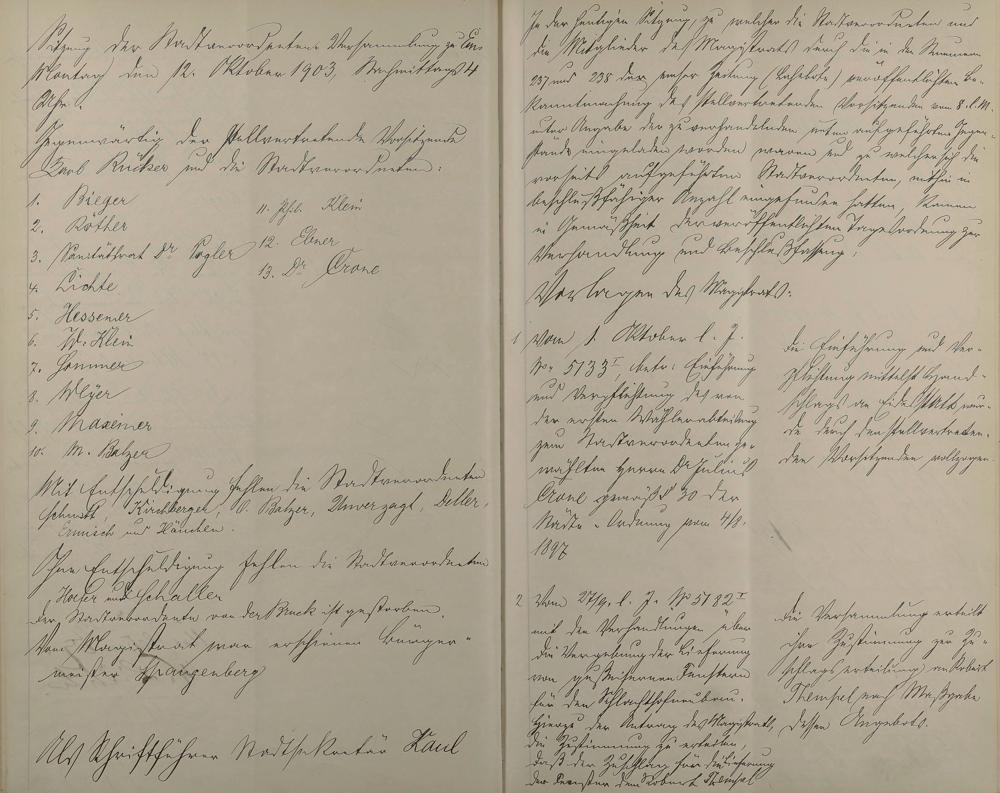 Sitzung der Stadtverordneten Versammlung zu Ems
Montag den 12. Oktober 1903, Nachmittags 4
Uhr.
Gegenwärtig der stellvertretende Vorsitzende
Karl Rücker und die Stadtverordneten:
1. Bieger
2. Röther
3. Sanitätsrat Dr Vogler
4. Lichte
5. Hessemer
6. W. Klein
7. Sommer
8. Weyer
9. Maxeiner
10. M. Balzer
11. Phil. Klein
12. Ebner
13. Dr Crone
Mit Entschuldigung fehlen die Stadtverordneten
Schmitt, Kirchberger, C. Balzer, Unverzagt, Deller,
Ermisch und Hänchen.
Ohne Entschuldigung fehlen die Stadtverordneten
Hofer und Schaller
Der Stadtverordnete von der Muck ist gestorben.
Vom Magistrat war erschienen Bürger-
meister Spangenberg
Als Schriftführer Stadtsekretär Kaul
In der heutigen Sitzung, zu welcher die Stadtverordneten und
die Mitglieder des Magistrats durch die in den Nummern
237 und 238 der Emser Zeitung (Lahnbote) veröffentlichten Be-
kanntmachung des stellvertretenden Vorsitzenden vom 8. l. M.
unter Angabe der zu verhandelnden unten aufgeführten Gegen-
stände eingeladen worden waren und zu welcher sich die
vorseits aufgeführten Stadtverordneten, mithin in
beschlußfähiger Anzahl eingefunden hatten, kamen
in Gemäßheit der veröffentlichten Tagesordnung zur
Verhandlung und Beschlußfassung:
Vorlagen des Magistrats:
1 Vom 1. Oktober l. J.
No 5133 I, betr: Einführung
und Verpflichtung des von
der ersten Wählerabteilung
zum Stadtverordneten ge-
wählten Herrn Dr Julius
Crone gemäß § 30 der
Städte-Ordnung vom 4/8.
1897
Die Einführung und Ver-
pflichtung mittelst Hand-
schlags an Eidesstatt wur-
de durch den stellvertreten-
den Vorsitzenden vollzogen.
2 Vom 27/9. l. J. No 5182 I
mit den Verhandlungen über
die Vergebung der Lieferung
von gußeisernen Fenstern
für den Schlachthofneubau.
Hierzu der Antrag des Magistrats,
die Zustimmung zu erteilen,
daß der Zuschlag für die Lieferung
der Fenster dem Robert Thempel
Die Versammlung erteilt
ihre Zustimmung zur Zu-
schlagserteilung an Robert
Thempel nach Maßgabe
dessen Angebots.